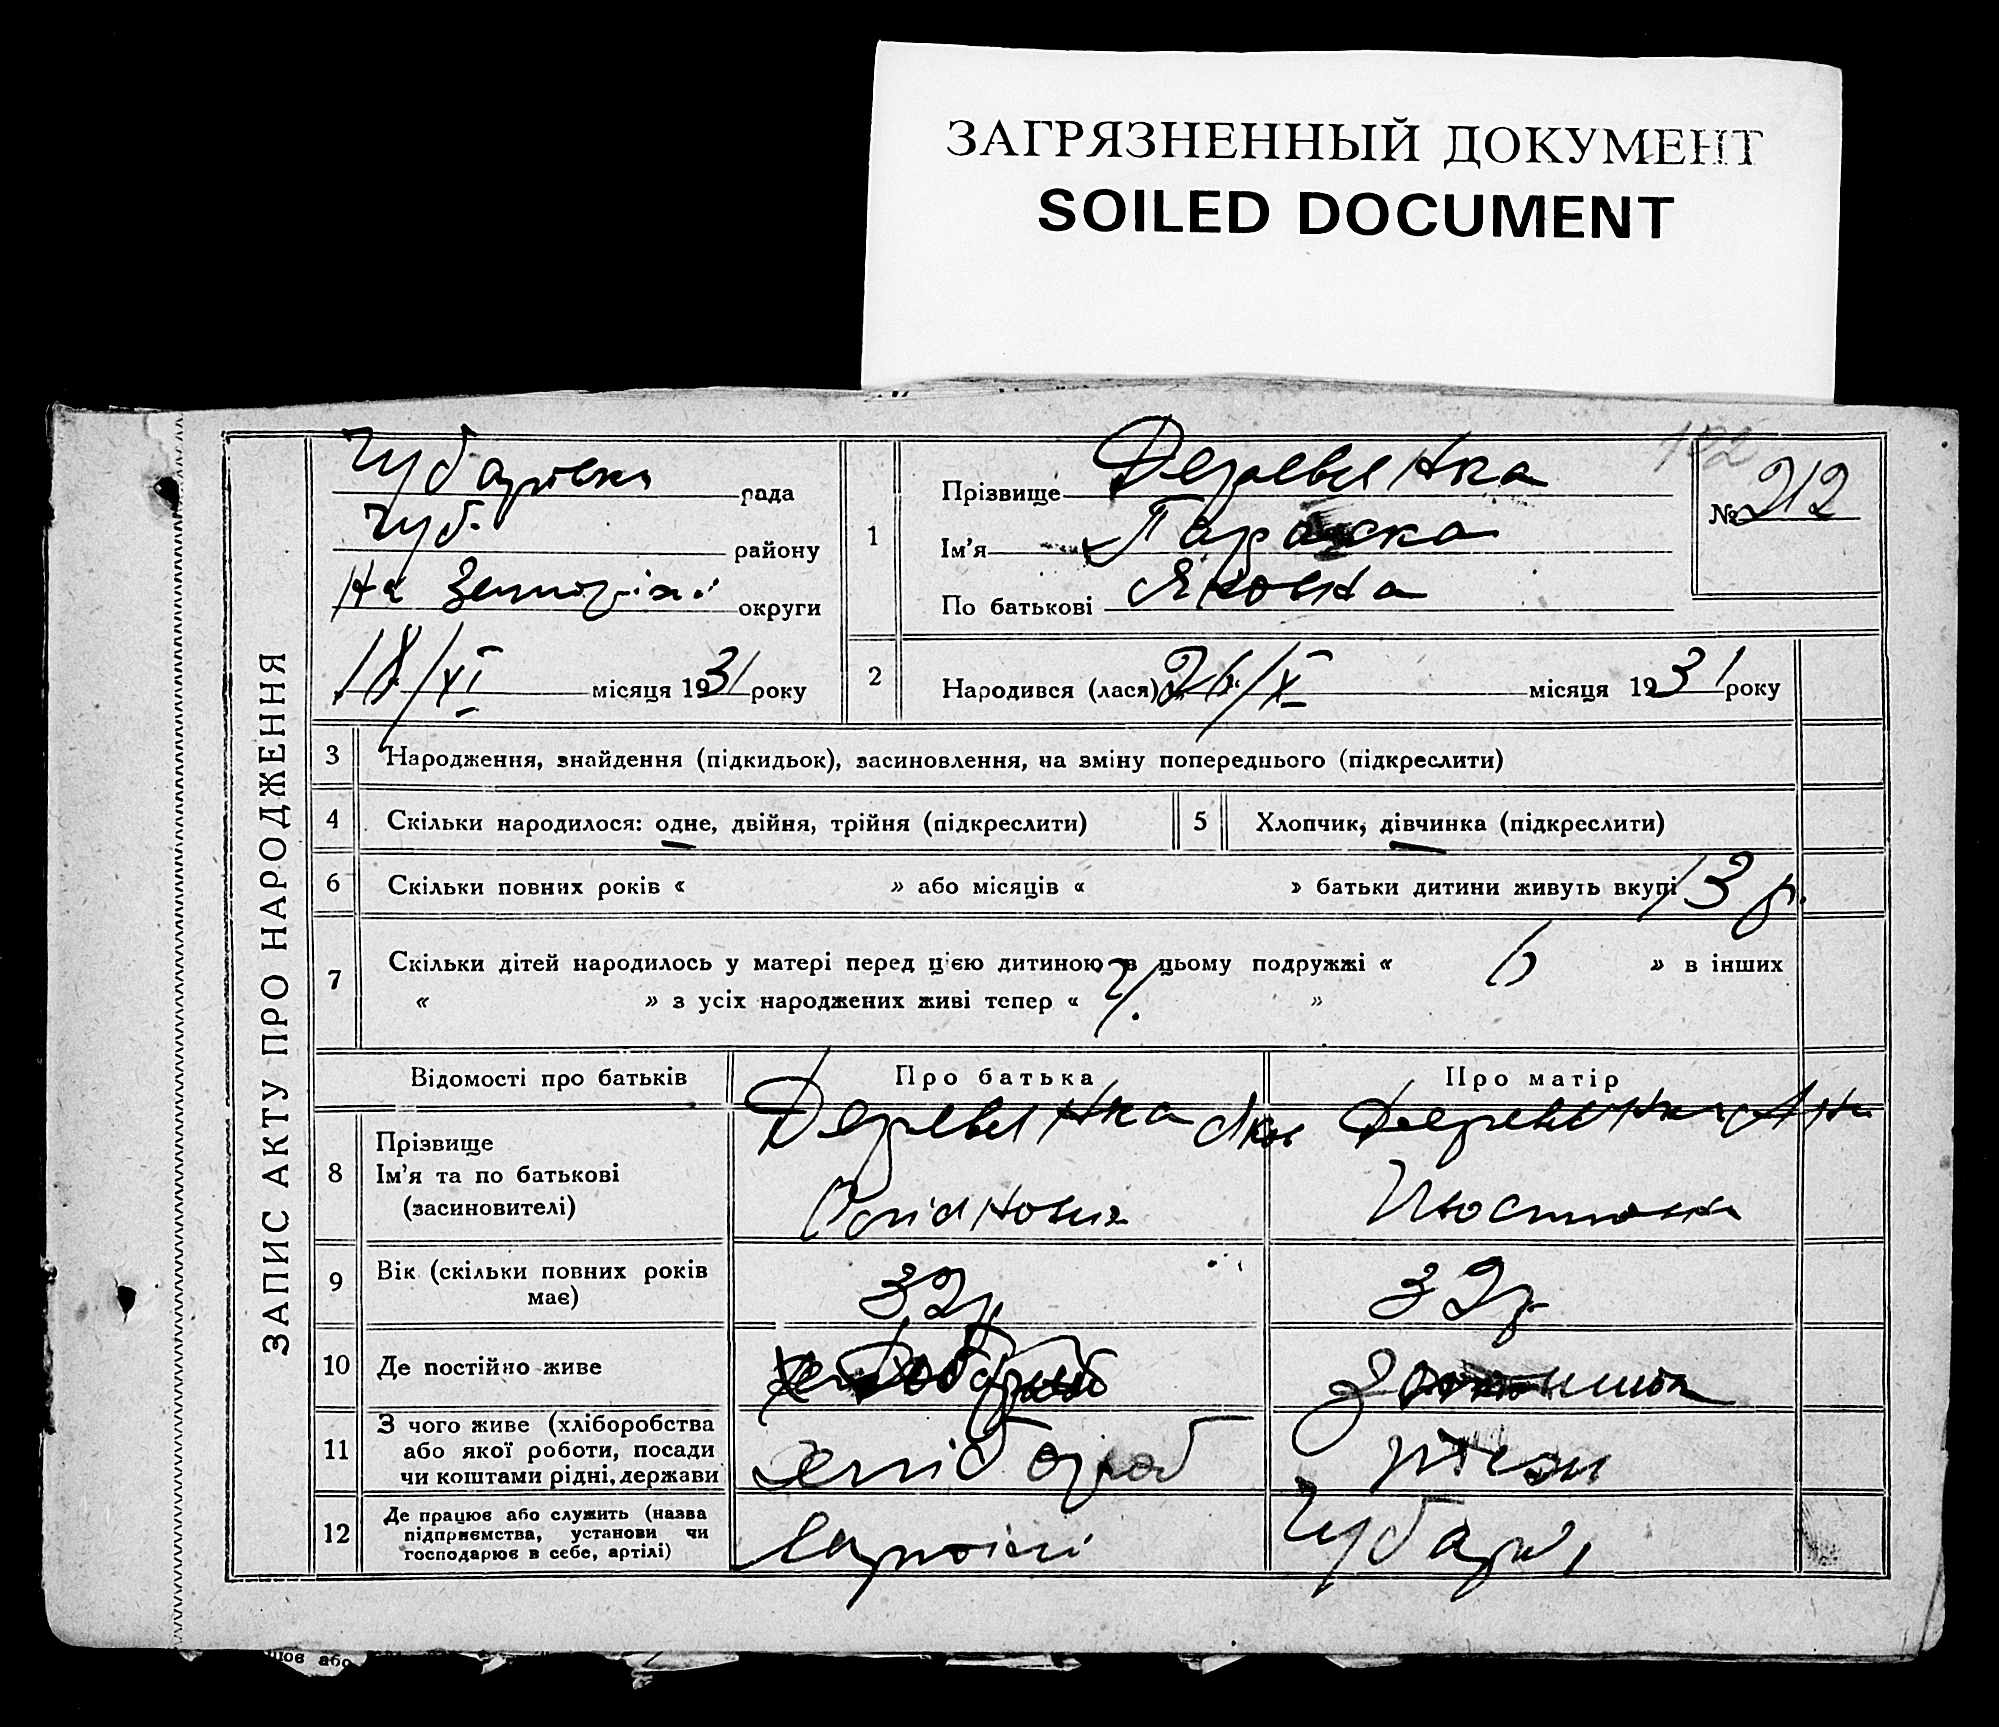 ЗАГРЯЗНЕННЫЙ ДОКУМЕНТ
SOILED DOCUMENT
ЗАПИС АКТУ ПРО НАРОДЖЕННЯ
рада
Чуб. району
На округи
18/XI місяця 1931 року
1
Прізвище Деревянка
Ім'я Параска
По батькові Яковна
№ 212
2
Народився (лася) 26/X місяця 1931 року
3 Народження, знайдення (підкидьок), засиновлення, на зміну попереднього (підкреслити)
4 Скільки народилося: одне, двійня, трійня (підкреслити)
5 Хлопчик, дівчинка (підкреслити)
6 Скільки повних років « » або місяців « » батьки дитини живуть вкупі 13 р.
7 Скільки дітей народилось у матері перед цією дитиною в цьому подружжі « 6 » в інших
« » з усіх народжених живі тепер « »
Відомості про батьків
Про батька
Про матір
8 Прізвище
Ім'я та по батькові
(засиновителі)
Деревянка Яков
Деревянка
9 Вік (скільки повних років
має)
32 р.
32 р.
10 Де постійно живе
11 З чого живе (хліборобства
або якої роботи, посади
чи коштами рідні, держави
хлібороб
12 Де працює або служить (назва
підприємства, установи чи
господарює в себе, артілі)
цює або